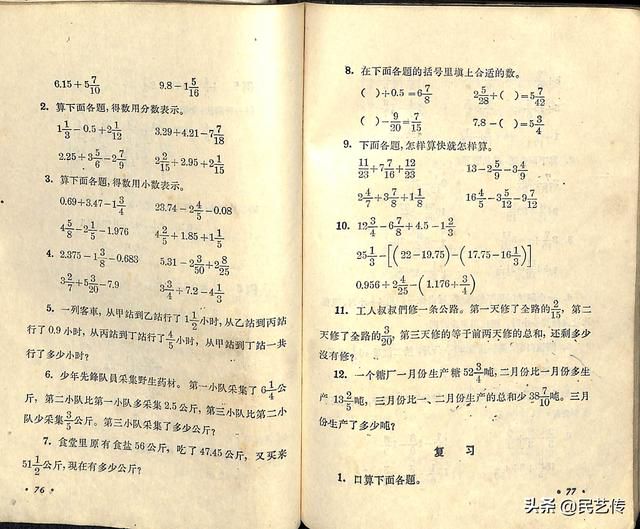 6.15+5 7/10  9.8-1 5/16
2. 算下面各题,得数用分数表示。
1 1/3-0.5+2 1/12  3.29+4.21-7 7/18
2.25+3 5/6-2 7/9  2 2/15+2.95+2 1/15
3. 算下面各题,得数用小数表示。
0.69+3.47-1 3/4  23.74-2 4/5-0.08
4 5/8-2 1/5-1.976  4 2/5+1.85+1 1/5
4. 2.375-1 3/8-0.683  5.31-2 3/50+2 8/25
3 2/7+5 3/20-7.9  3 3/4+7.2-4 1/3
5. 一列客車,从甲站到乙站行了1 1/2小时,从乙站到丙站
行了0.9小时,从丙站到丁站行了4/5小时,从甲站到丁站一共
行了多少小时?
6. 少年先鋒队員采集野生药材。第一小队采集了6 1/4公
斤,第二小队比第一小队多采集2.5公斤,第三小队比第二小
队少采集3/5公斤。第三小队采集了多少公斤?
7. 食堂里原有食盐56公斤,吃了47.45公斤,又买来
51 1/2公斤,現在有多少公斤?
·76·
8. 在下面各题的括号里填上合适的数。
( )+0.5=6 7/8  2 5/28+( )=5 7/42
( )-9/20=7/15  7.8-( )=5 3/4
9. 下面各题,怎样算快就怎样算。
11/23+7 7/16+12/23  13-2 5/9-3 4/9
2 4/7+3 7/8+1 1/8  16 4/5-3 5/12-9 7/12
10. 12 3/4-6 7/8+4.5-1 2/3
25 1/3-[(22-19.75)-(17.75-16 1/3)]
0.956+2 4/25-(1.176+3/4)
11. 工人叔叔們修一条公路。第一天修了全路的2/15,第二
天修了全路的3/20,第三天修的等于前两天修的总和,还剩多少
沒有修?
12. 一个糖厂一月份生产糖52 3/4吨,二月份比一月份多生
产13 2/5吨,三月份比一、二月份生产的总和少38 7/10吨。三月
份生产了多少吨?
复 习
1. 口算下面各题。
·77·
头条 @民艺传